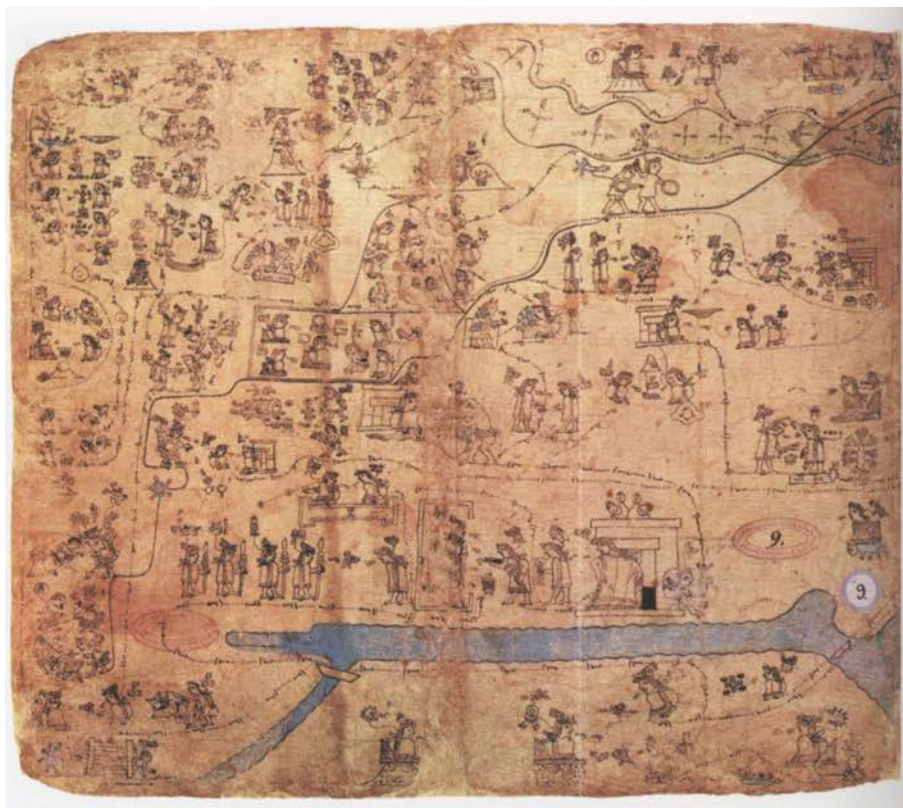 9.
9